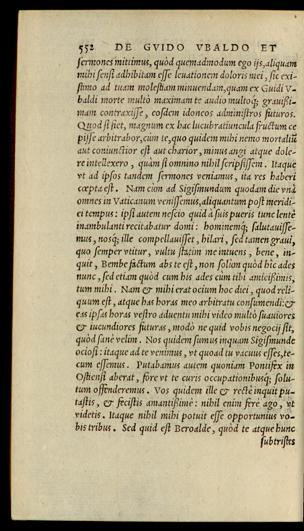 552 DE GVIDO VBALDO ET
sermones mittimus, quòd quemadmodum ego ijs, aliquam
mihi sensi adhibitam esse leuationem doloris mei, sic exi-
stimo ad tuam molestiam minuendam, quam ex Guidi V-
baldi morte multò maximam te audio multoq; grauißi-
mam contraxisse, eosdem idoneos administros futuros.
Quod si fiet, magnum ex hac lucubratiuncula fructum ce
pisse arbitrabor, cùm te, quo quidem mihi nemo mortaliũ
aut coniunctior est aut charior, minus angi atque dole-
re intellexero, quàm si omnino nihil scripsissem. Itaque
vt ad ipsos tandem sermones veniamus, ita res haberi
cœpta est. Nam cùm ad Sigismundum quodam die vnà
omnes in Vaticanum venissemus, aliquantum post meridi-
ei tempus: ipsi autem nescio quid à suis pueris tunc lentè
inambulanti recitabatur domi: hominemq; salutauisse-
mus, nosq; ille compellauisset, hilari, sed tamen graui,
quo semper vtitur, vultu statim me intuens, bene, in-
quit, Bembe factum abs te est, non solùm quòd hic ades
nunc, sed etiam quòd cum his ades cùm tibi amicißimis,
tum mihi. Nam & mihi erat ocium hoc diei, quod reli-
quum est, atque has horas meo arbitratu consumendi: &
eas ipsas horas vestro aduentu mihi video multò suauiores
& iucundiores futuras, modò ne quid vobis negocij sit,
quòd sanè velim. Nos quidem sumus inquam Sigismunde
ociosi: itaque ad te venimus, vt quoad tu vacuus esses, te-
cum essemus. Putabamus autem quoniam Pontifex in
Ostiensi aberat, fore vt te curis occupationibusq; solu-
tum offenderemus. Vos quidem ille & rectè inquit pu-
tastis, & fecistis amantißimè: nihil enim ferè ago, vt
videtis. Itaque nihil mihi potuit esse opportunius vo-
bis tribus. Sed quid est Beroalde, quòd te atque hunc
subtristes